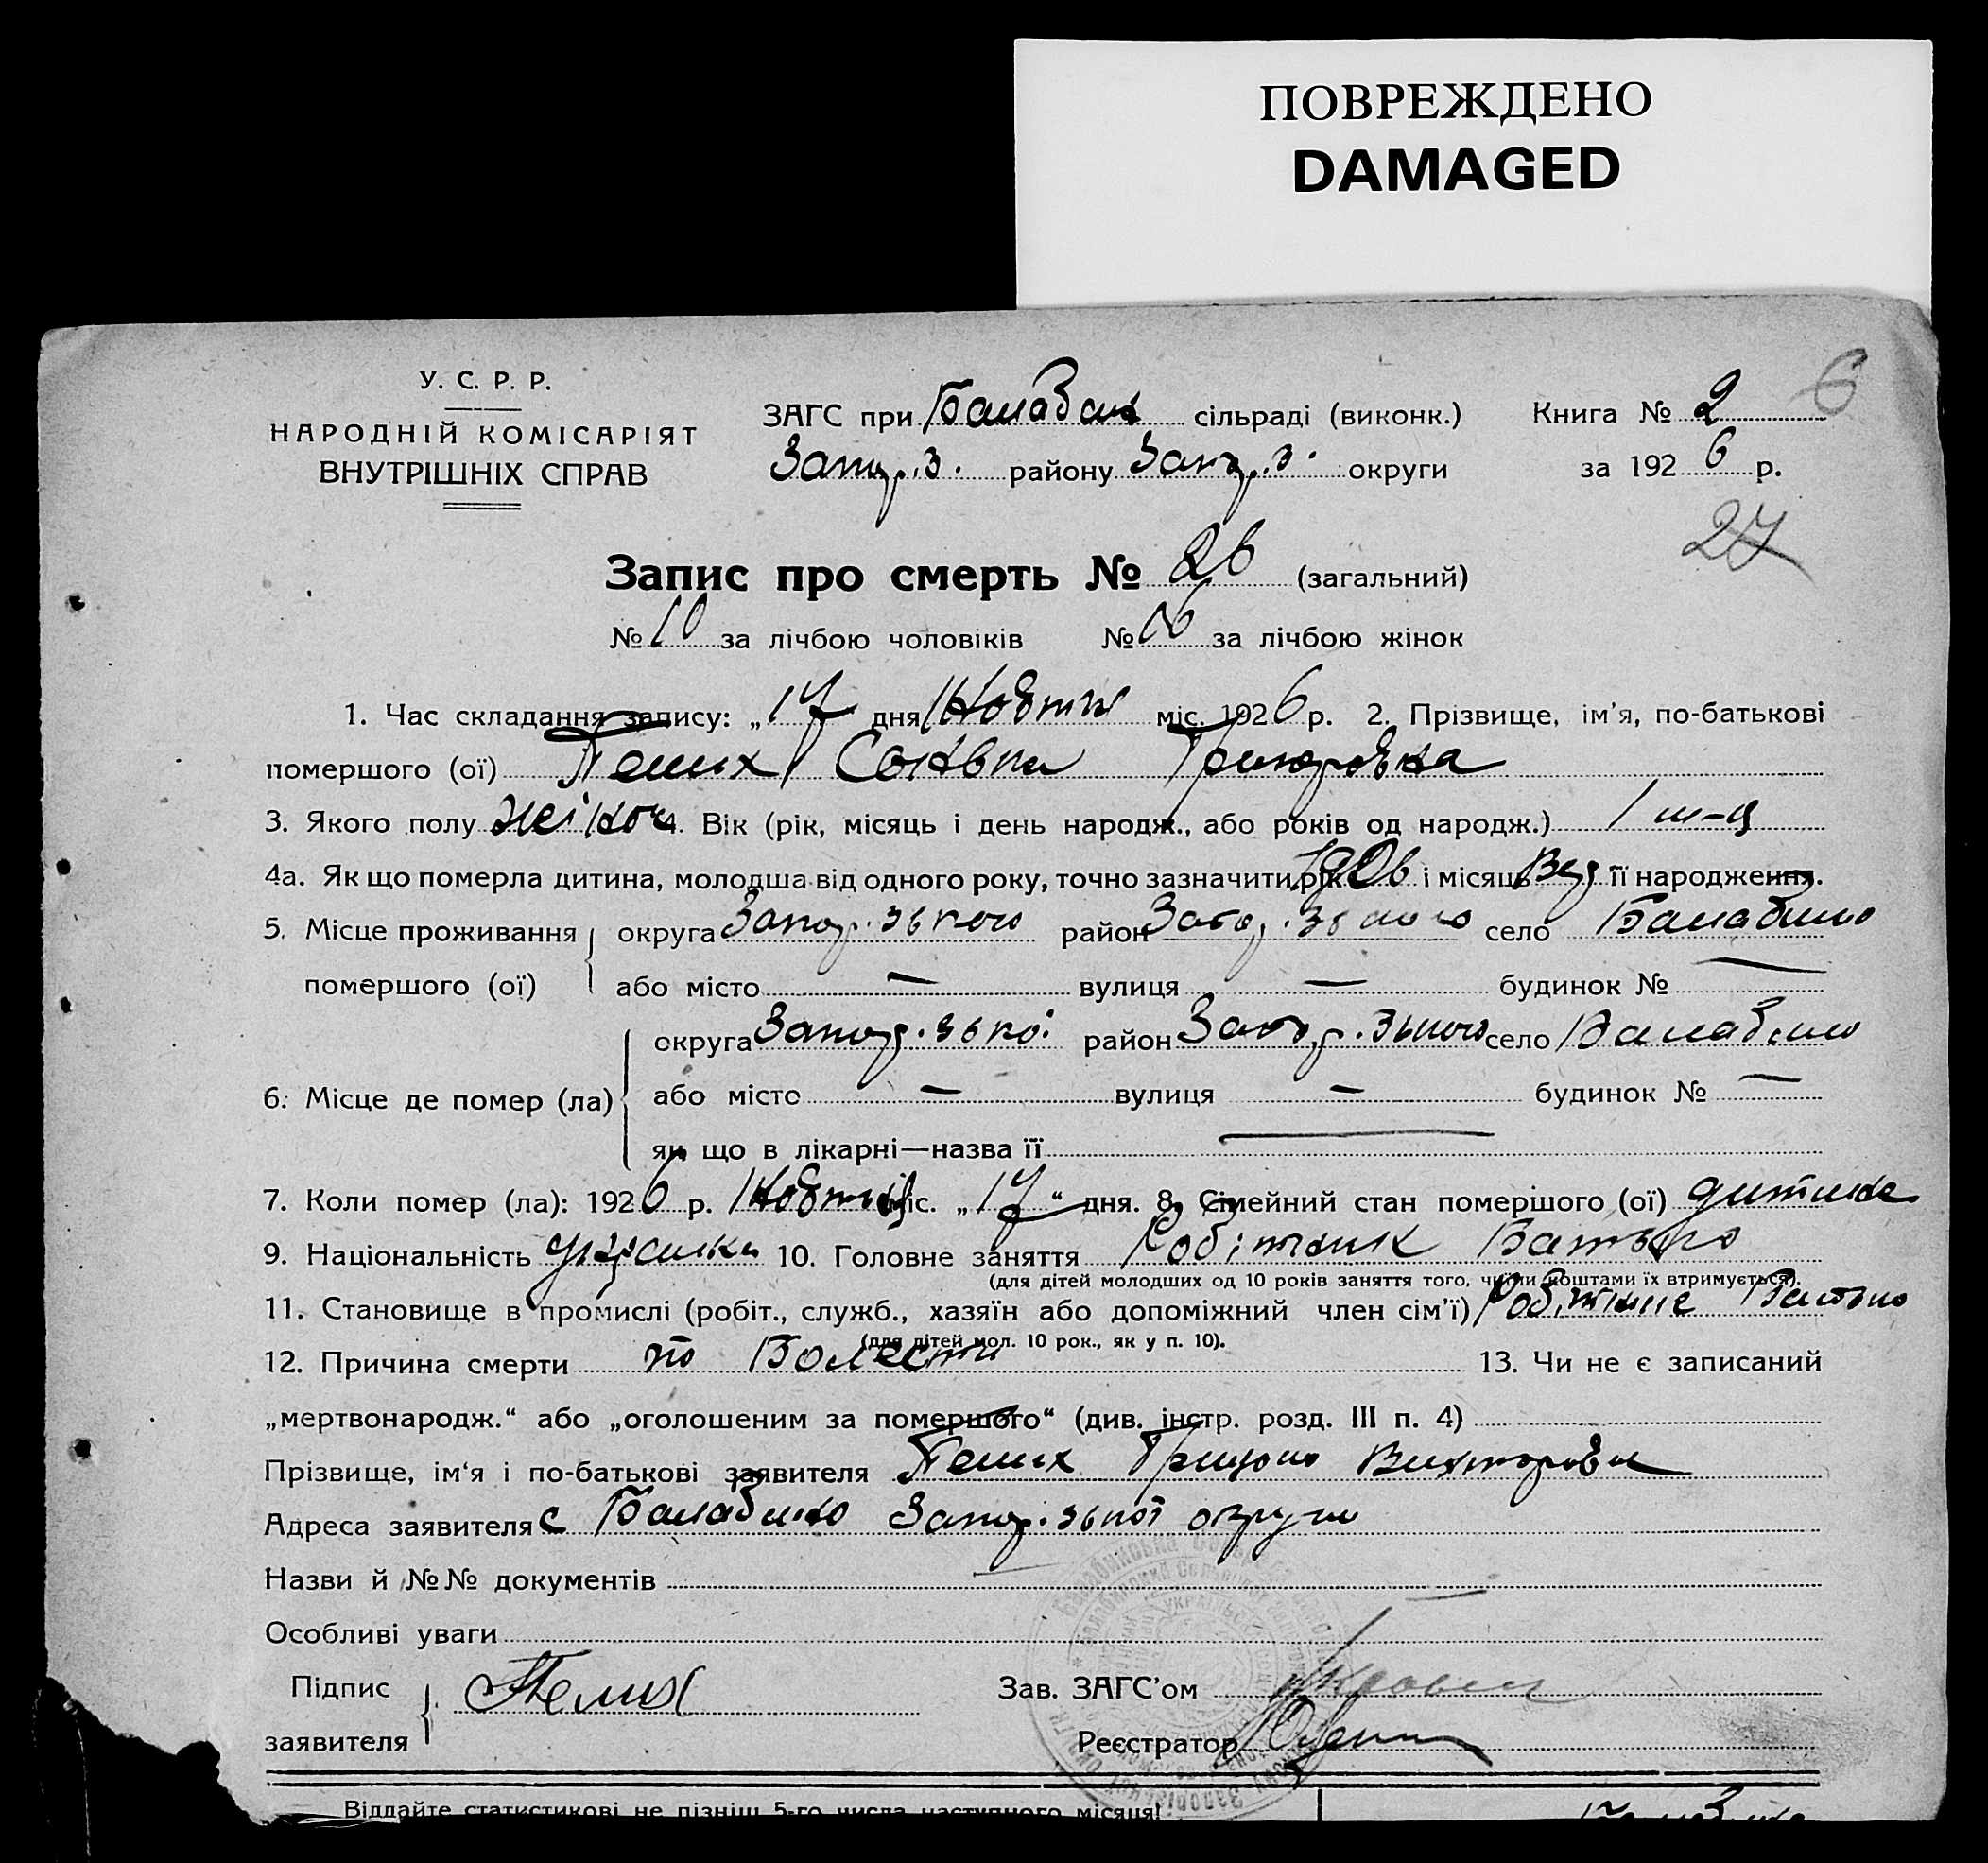 ПОВРЕЖДЕНО
DAMAGED
У. С. Р. Р.
НАРОДНІЙ КОМІСАРІЯТ
ВНУТРІШНІХ СПРАВ
ЗАГС при Балабин сільраді (виконк.)
Запор.з. району Запор.з. округи
Книга № 2
6
за 1926 р.
27
Запис про смерть № 26 (загальний)
№ 10 за лічбою чоловіків № 16 за лічбою жінок
1. Час складання запису: „17 дня Жовтня міс. 1926 р. 2. Прізвище, ім'я, по-батькові
помершого (ої) Пелих
3. Якого полу жіноч 4. Вік (рік, місяць і день народж., або років од народж.) 1 м-ц
4а. Як що померла дитина, молодша від одного року, точно зазначити рік 1926 і місяць Вер її народження.
5. Місце проживання округа район село Балабино
помершого (ої) або місто — вулиця — будинок № —
округа Запор.зької район Запор.зького село Балабино
6. Місце де помер (ла) або місто — вулиця — будинок № —
як що в лікарні—назва її —
7. Коли помер (ла): 1926 р. Жовтня міс. „17“ дня. 8. Сімейний стан померішого (ої) дитина
9. Національність українка 10. Головне заняття Робітник Батько
(для дітей молодших од 10 років заняття того, чиїми коштами їх втримується).
11. Становище в промислі (робіт., служб., хазяїн або допоміжний член сім'ї) Робітник Батько
(для дітей мол. 10 рок., як у п. 10).
12. Причина смерти 13. Чи не є записаний
„мертвонародж.“ або „оголошеним за помершого“ (див. інстр. розд. III п. 4)
Прізвище, ім'я і по-батькові заявителя Пелих
Адреса заявителя с Балабино Запор.зької округи
Назви й №№ документів
Особливі уваги
Підпис
заявителя Пелих
Зав. ЗАГС'ом
Реєстратор
Віддайте статистикові не пізніш 5-го числа наступного місяця!